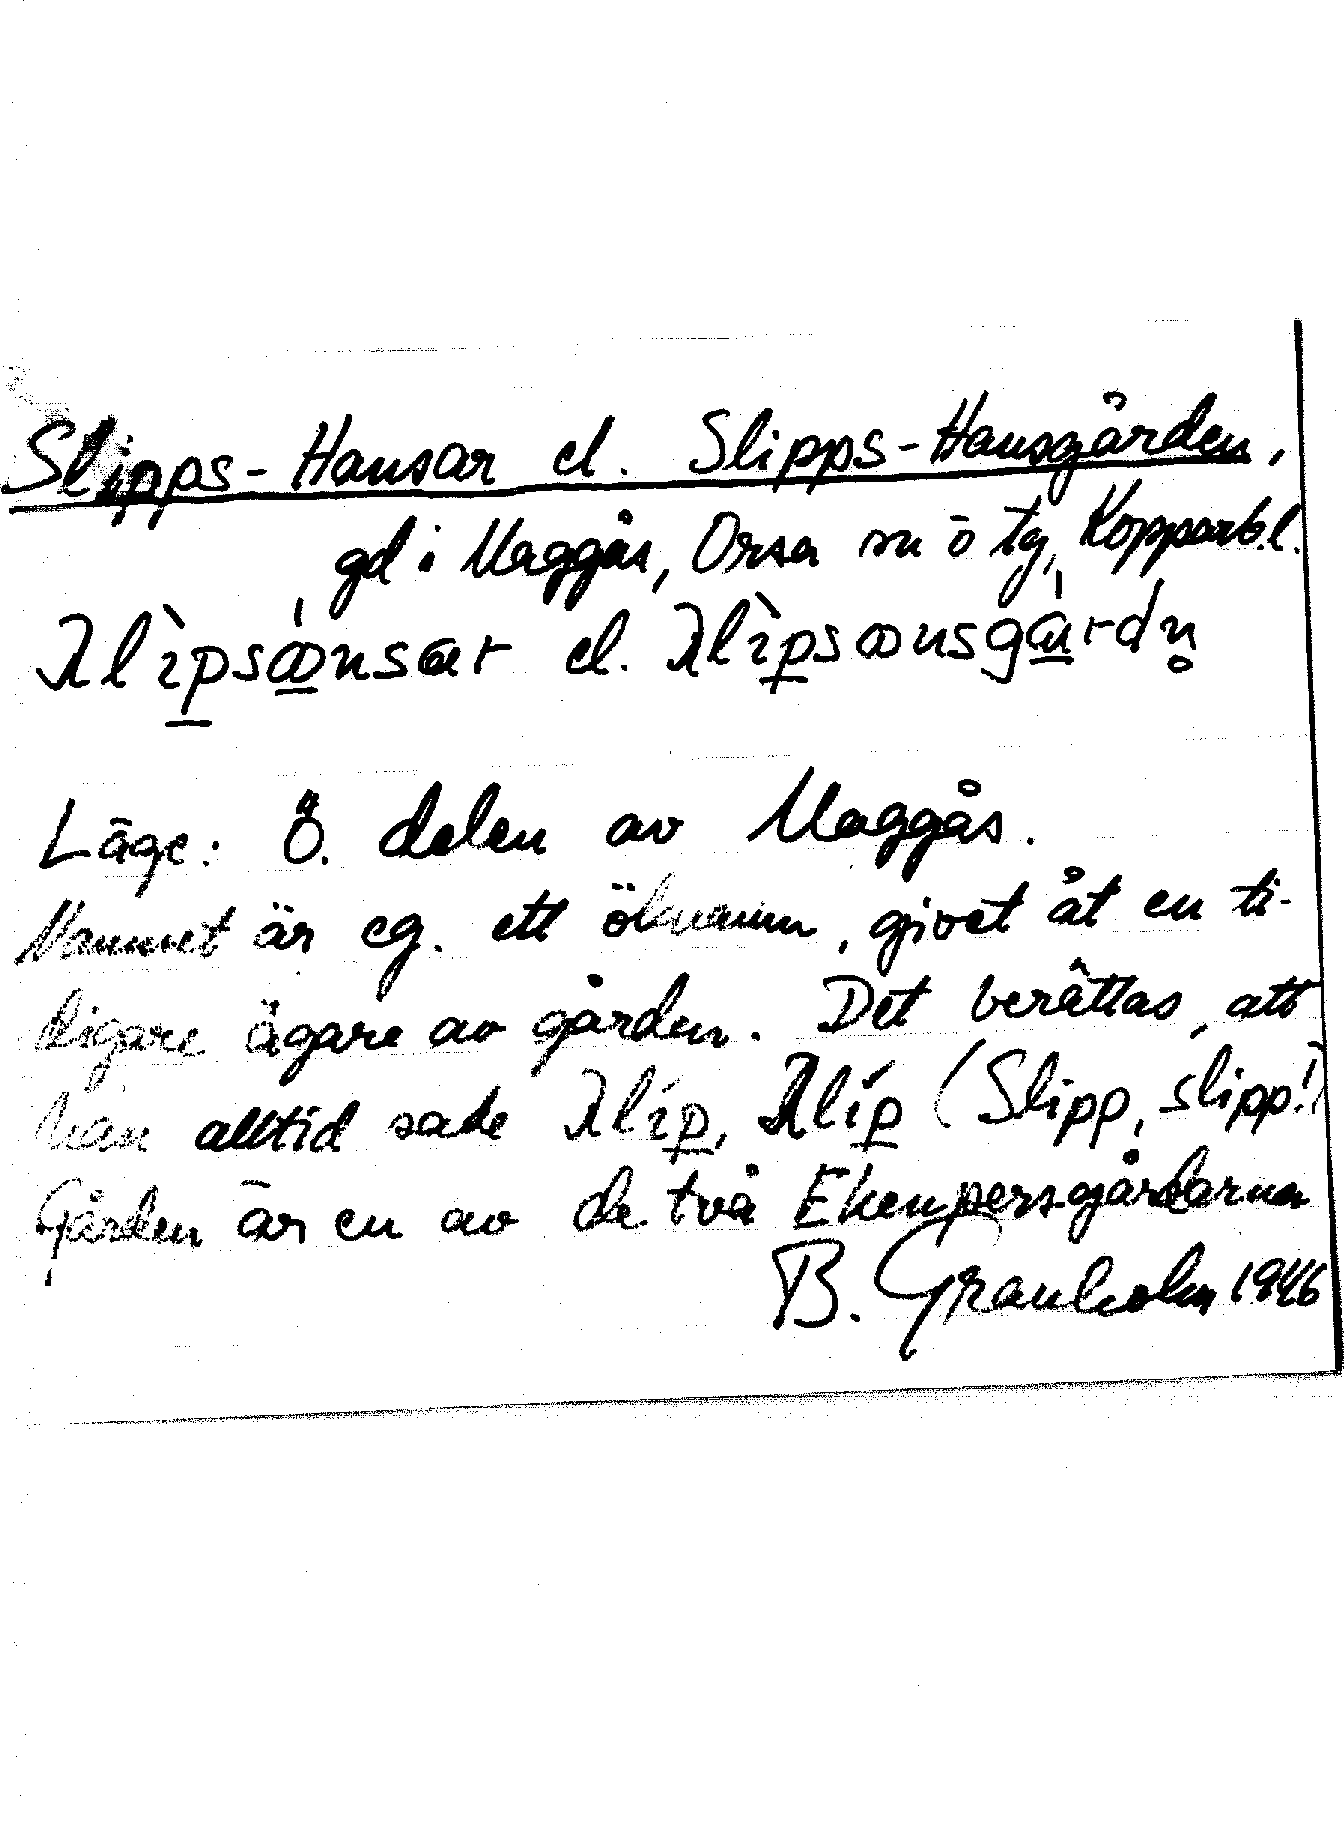 Slipps-Hansar el. Slipps-Hansgården,
gd i Maggås, Orsa sn ö tg, Kopparb.l.
el.
Läge: Ö. delen av Maggås.
Namnet är eg. ett öknamn, givet åt en ti-
digare ägare av gården. Det berättas, att
han alltid sade (Slipp, slipp!)
Gården är en av de två Ekenpersgårdarna
B. Granholm 1946